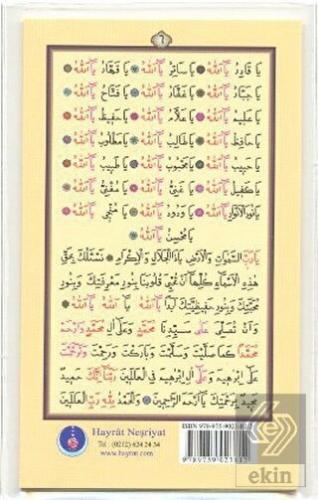 ٦
يَا قَادِرُ يَا اَللّٰهُ ❋ يَا سَاتِرُ يَا اَللّٰهُ ❋ يَا قَهَّارُ يَا اَللّٰهُ ❋
يَا جَبَّارُ يَا اَللّٰهُ ❋ يَا غَفَّارُ يَا اَللّٰهُ ❋ يَا فَتَّاحُ يَا اَللّٰهُ ❋
يَا عَلِيمُ يَا اَللّٰهُ ❋ يَا عَلَّامُ يَا اَللّٰهُ ❋ يَا حَفِيظُ يَا اَللّٰهُ ❋
يَا حَافِظُ يَا اَللّٰهُ ❋ يَا طَالِبُ يَا اَللّٰهُ ❋ يَا مَطْلُوبُ يَا اَللّٰهُ ❋
يَا حَبِيبُ يَا اَللّٰهُ ❋ يَا مَحْبُوبُ يَا اَللّٰهُ ❋ يَا طَبِيبُ يَا اَللّٰهُ ❋
يَا كَفِيلُ يَا اَللّٰهُ ❋ يَا غَنِيُّ يَا اَللّٰهُ ❋ يَا مُغْنِي يَا اَللّٰهُ ❋
يَا نُورَ الْاَنْوَارِ يَا اَللّٰهُ ❋ يَا وَدُودُ يَا اَللّٰهُ ❋ يَا مُنْجِي يَا اَللّٰهُ ❋
يَا مُحْسِنُ يَا اَللّٰهُ ❋
يَا رَبَّ السَّمٰوَاتِ وَالْاَرْضِ يَا ذَا الْجَلَالِ وَالْاِكْرَامِ ❋ نَسْئَلُكَ بِحَقِّ
هٰذِهِ الْاَسْمَاءِ كُلِّهَا اَنْ تُحْيِيَ قُلُوبَنَا بِنُورِ مَعْرِفَتِكَ وَبِنُورِ
مَحَبَّتِكَ وَبِنُورِ حَفِيظِيَّتِكَ اَبَدًا يَا اَللّٰهُ يَا اَللّٰهُ يَا اَللّٰهُ
وَاَنْ تُصَلِّيَ عَلٰى سَيِّدِنَا مُحَمَّدٍ وَعَلٰى اٰلِ مُحَمَّدٍ وَارْحَمْ
مُحَمَّدًا كَمَا صَلَّيْتَ وَسَلَّمْتَ وَبَارَكْتَ وَرَحِمْتَ وَتَرَحَّمْتَ
عَلٰى اِبْرٰهِيمَ وَعَلٰى اٰلِ اِبْرٰهِيمَ فِي الْعَالَمِينَ رَبَّنَا اِنَّكَ حَمِيدٌ
مَجِيدٌ بِرَحْمَتِكَ يَا اَرْحَمَ الرَّاحِمِينَ ❋ وَالْحَمْدُ لِلّٰهِ رَبِّ الْعَالَمِينَ
Hayrât Neşriyat
Tel : (0212) 624 24 34
www.hayrat.com
ekin